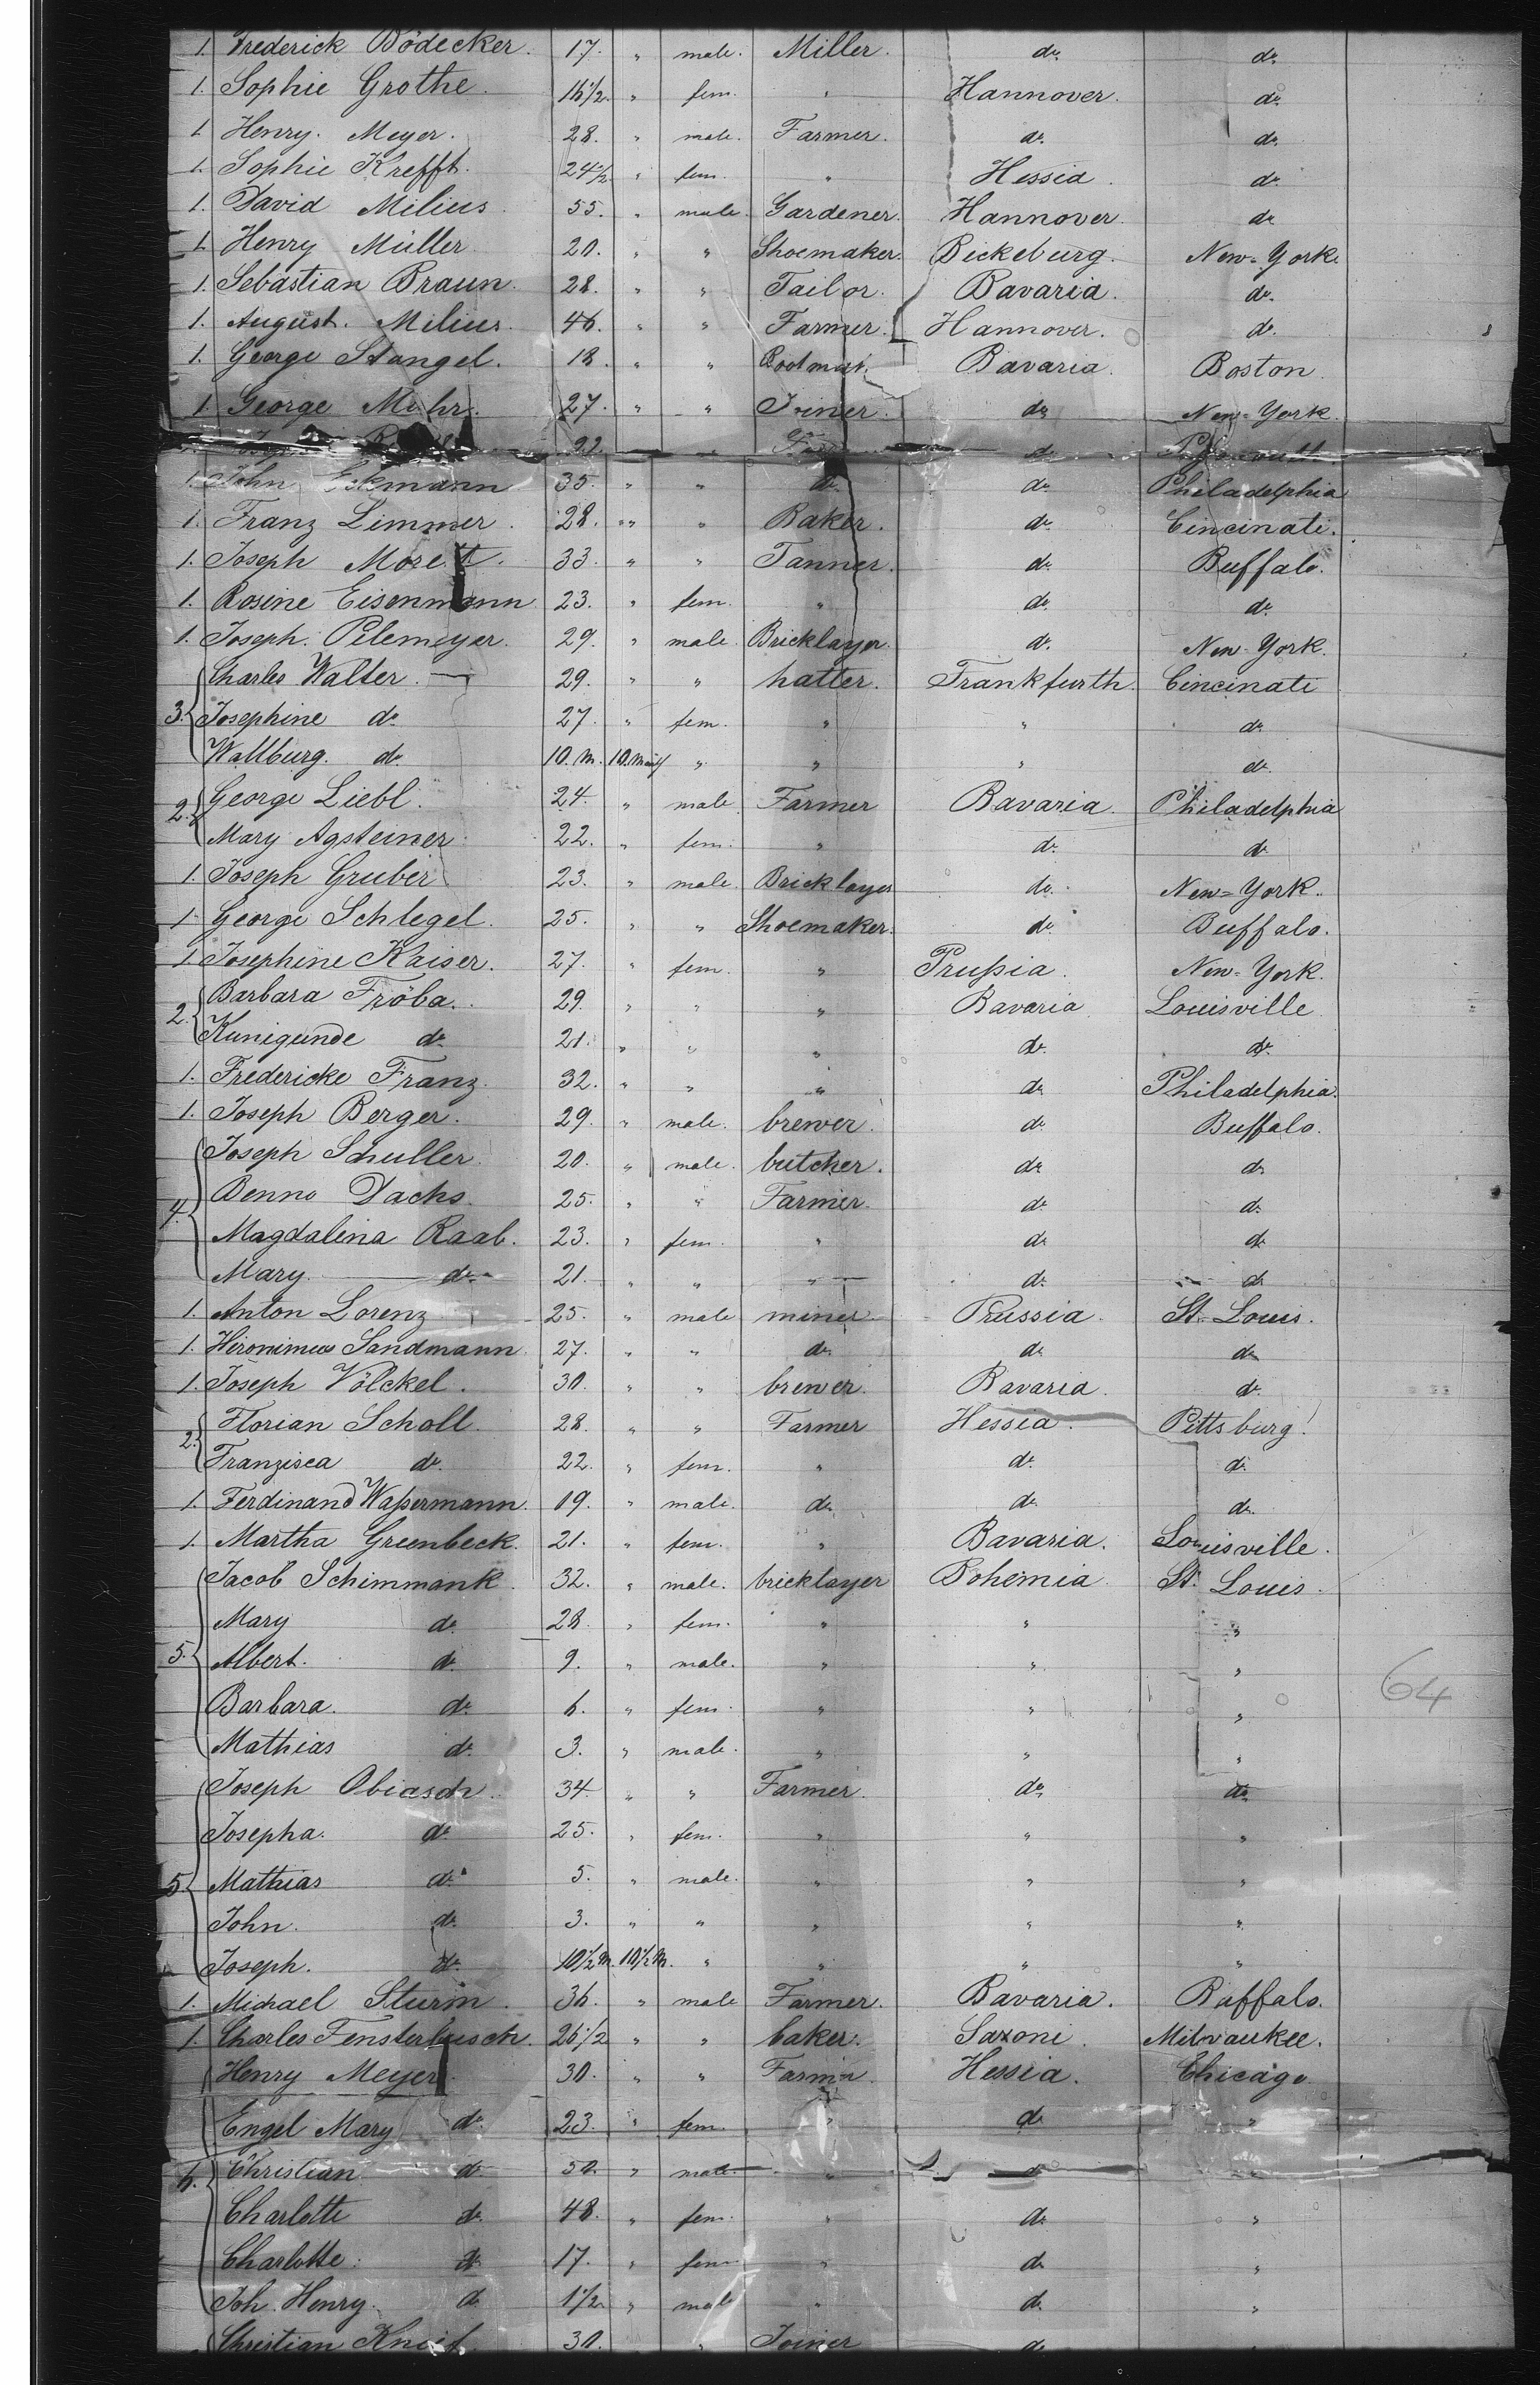 1. Frederick Bödecker. 17. " male. Miller. do. do.
1. Sophie Grothe 16 1/2. " fem. " Hannover. do.
1. Henry. Meyer. 28. " male. Farmer. do. do.
1. Sophie Krefft. 24 1/2. " fem. " Hessia. do.
1. David Milius 55. " male. Gardener. Hannover. do.
1. Henry Müller. 20. " " Shoemaker. Bickeburg. New-York.
1. Sebastian Braun. 28. " " Tailor. Bavaria. do.
1. August. Milius. 46. " " Farmer. Hannover. do.
1. George Stangel. 18. " " Bavaria. Boston.
1. George 27. " " Joiner. do. New-York.
22 do
1. John Eckmann 35. " " do. do. Philadelphia
1. Franz Limmer. 28. " " Baker. do. Cincinati.
1. Joseph 33. " " Tanner. do. Buffalo.
1. Rosine Eisenmann 23. " fem. " do. do.
1. Joseph. Pilemeyer. 29. " male. Bricklayer. do. New-York.
Charles Walter. 29. " " hatter. Frankfurth. Cincinati
3. Josephine do. 27. " fem. " " do.
Wallburg. do. 10. m. 10. " " " do.
George Liebl. 24. " male Farmer Bavaria. Philadelphia
2. Mary Agsteiner 22. " fem. " do. do
1. Joseph Gruber 23. " male. Bricklayer do. New-York.
1. George Schlegel. 25. " " Shoemaker. do. Buffalo.
1. Josephine Kaiser. 27. " fem. " Prußia. New-York.
Barbara Fröba. 29. " " " Bavaria Louisville
2. Kunigunde do. 21. " " " do. do.
1. Fredericke Franz. 32. " " " do. Philadelphia.
1. Joseph Berger. 29. " male. brewer. do. Buffalo.
Joseph Schuller. 20. " male. butcher. do. do.
Benno Dachs. 25. " " Farmer. do. do.
4. Magdalina Raab. 23. " fem. " do. do.
Mary do. 21. " " " do. do
1. Anton Lorenz 25. " male miner Prussia. St. Louis.
1. Hironimus Sandmann. 27. " " do. do. do.
1. Joseph Völckel. 30. " " brewer. Bavaria. do.
Florian Scholl. 28. " " Farmer Hessia. Pittsburg!
2. Franzisca do. 22. " fem. " do. do.
1. Ferdinand Waßermann. 19. " male. do. do. do.
1. Martha Greenbeck. 21. " fem. " Bavaria. Louisville.
Jacob Schimmank. 32. " male. bricklayer Bohemia. St. Louis.
Mary do. 28. " fem. " " "
5. Albert. do. 9. " male. " " "
Barbara. do. 6. " fem. " " " 64
Mathias do. 3. " male. " " "
Joseph Obiasch. 34. " " Farmer. do. do.
Josepha. do. 25. " fem. " " "
5. Mathias do. 5. " male. " " "
John. do. 3. " " " " "
Joseph. do. 10 1/2 m. 10 1/2 m. " " " "
1. Michael Sturm. 36. " male Farmer. Bavaria. Buffalo.
1. Charles Fensterbusch. 26 1/2 " " baker. Saxoni. Milwaukee.
Henry Meyer. 30. " " Farmer. Hessia. Chicago
Engel Mary do. 23. " fem. " do "
6. Christian do. 50. " male. " "
Charlotte do. 48. " fem. " do. "
Charlotte. do. 17. " fem " do. "
Joh. Henry. do 1 1/2. " male " do. "
Christian Kneif 30. " Joiner do